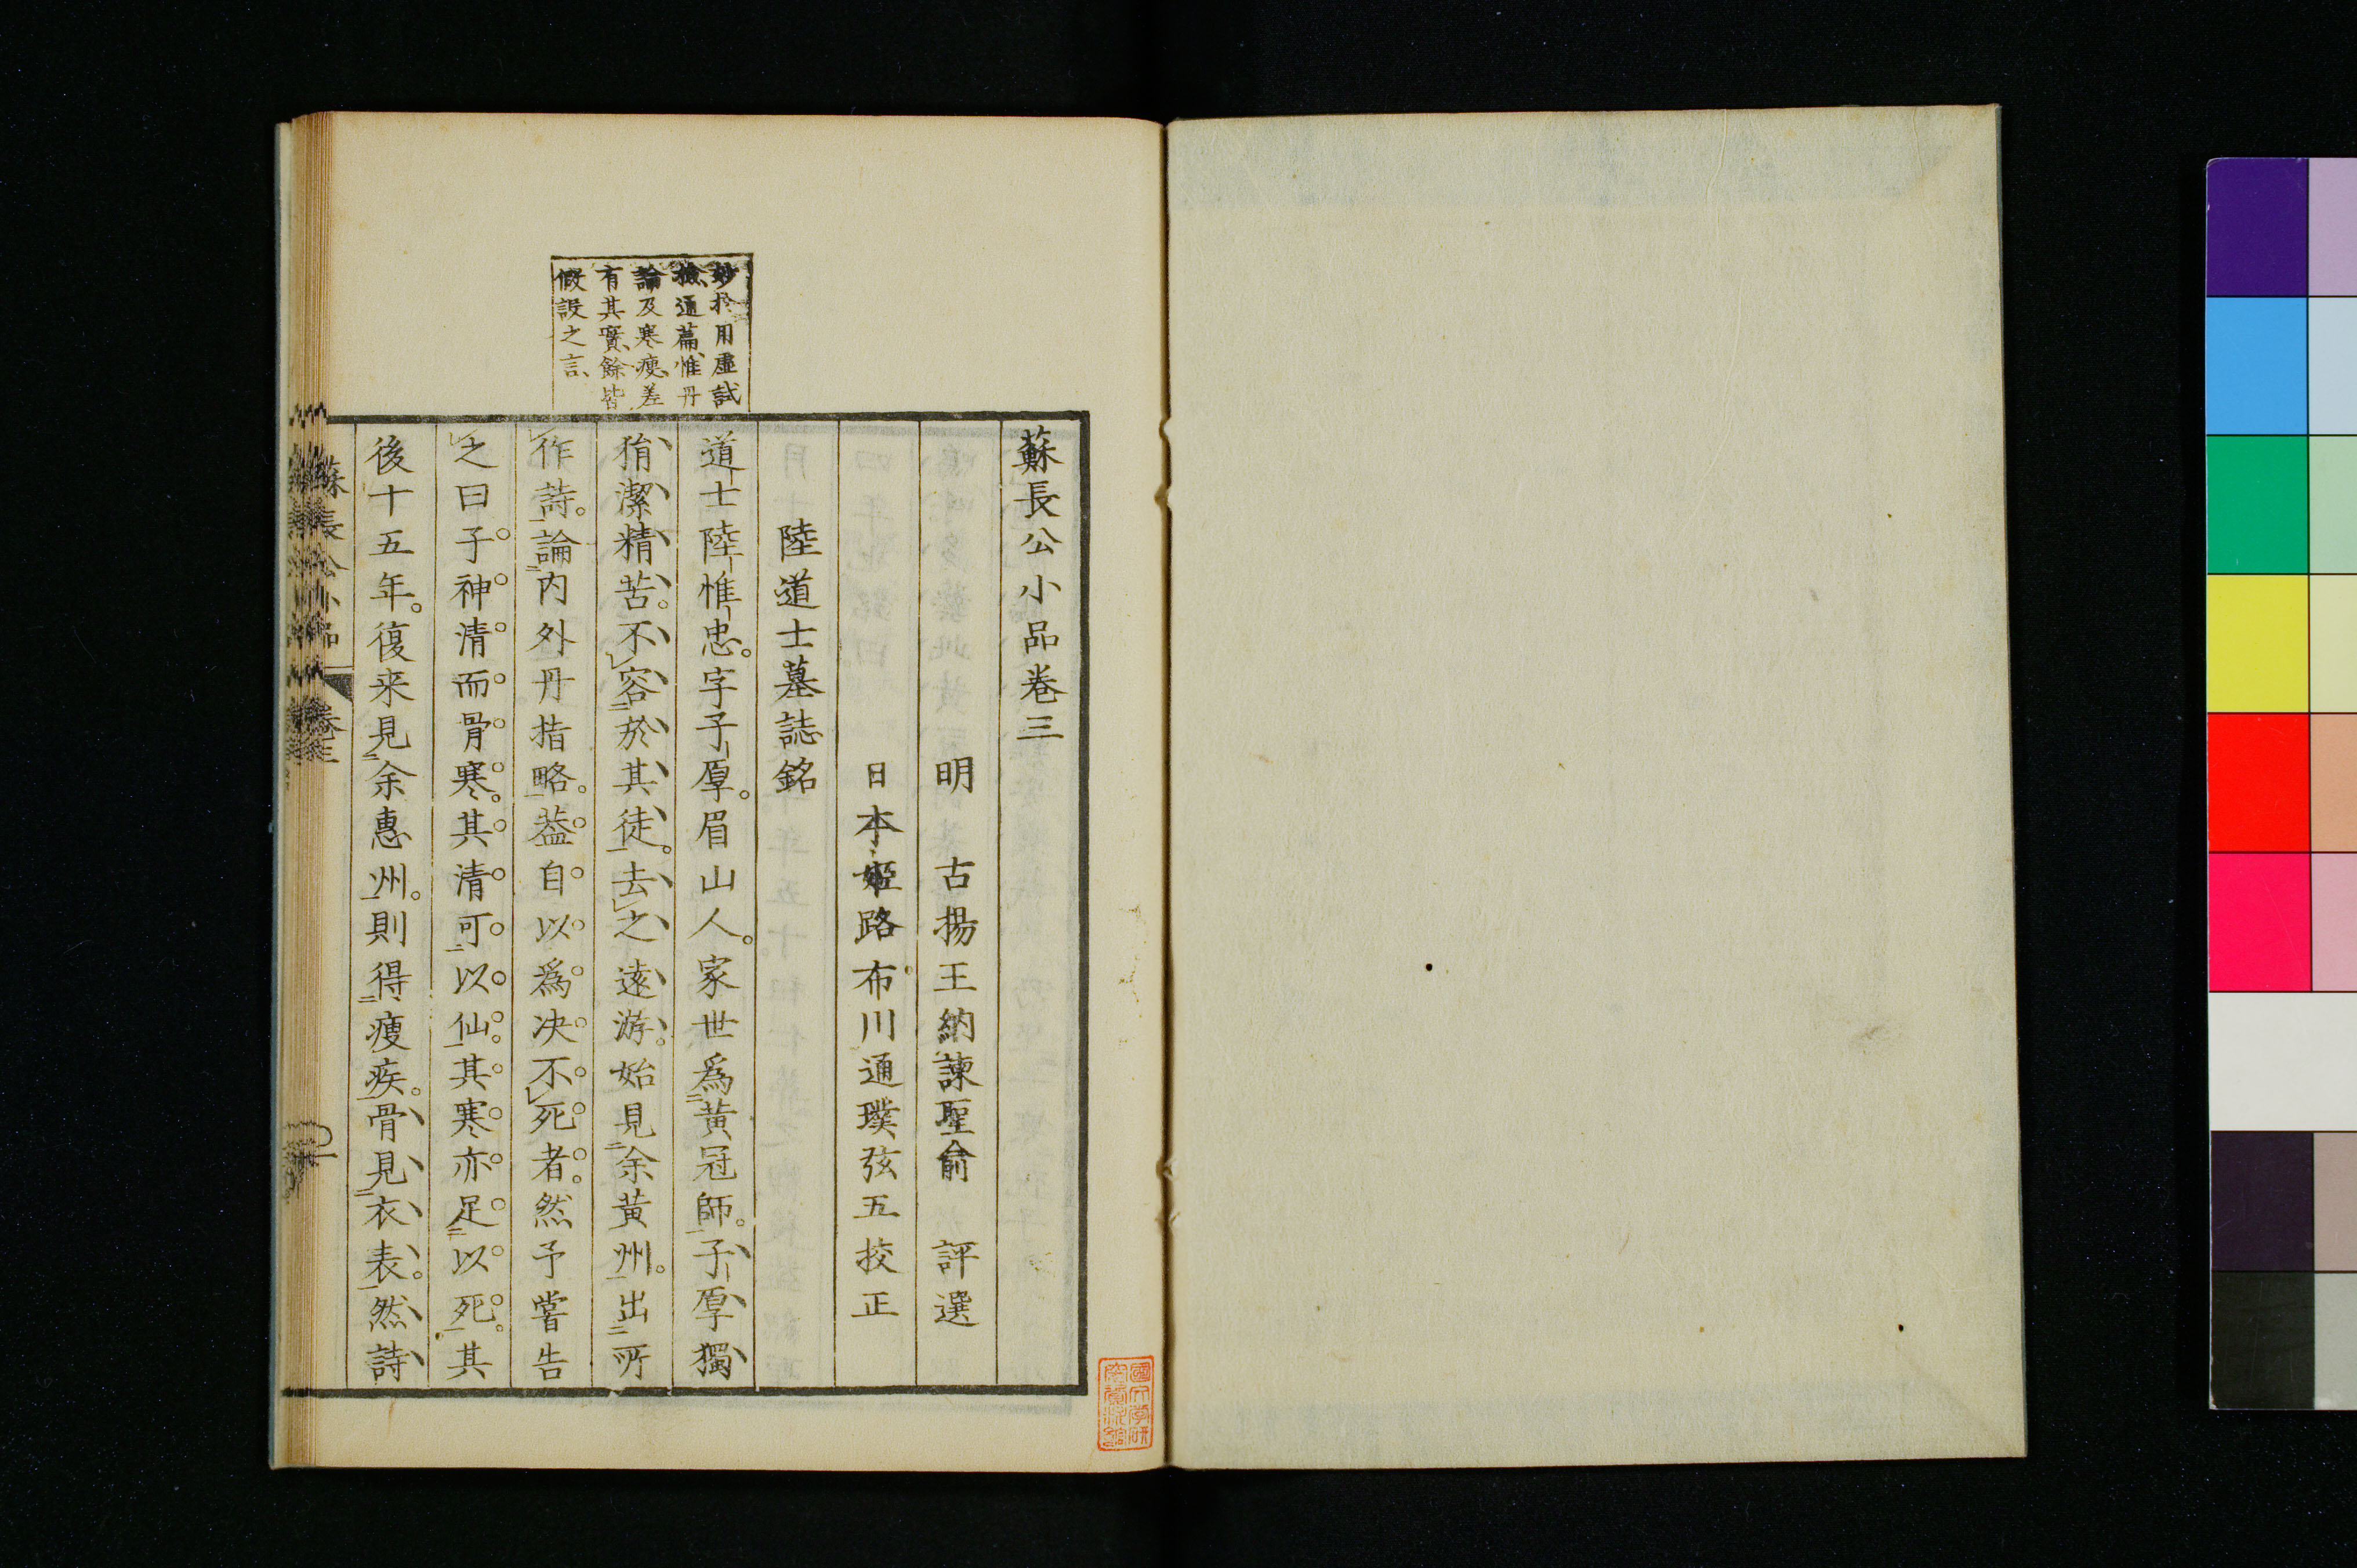 蘇長公小品卷三
明 古揚王納諫聖俞 評選
日本姬路布川通璞弦五挍正
陸道士墓誌銘
道士陸惟忠。字子厚。眉山人。家世爲黃冠師。子厚獨
狷潔精苦。不容於其徒。去之遠游。始見余黃州。出所
作詩。論內外丹指略。葢自以爲决不死者。然予嘗告
之曰子神清而骨寒。其清可以仙。其寒亦足以死。其
後十五年。復来見余惠州。則得瘦疾。骨見衣表。然詩
妙於用虛試
撿通篇惟丹
論及寒瘦差
有其實餘皆
假設之言
蘇長公小品 卷三
國文學研
究資料館